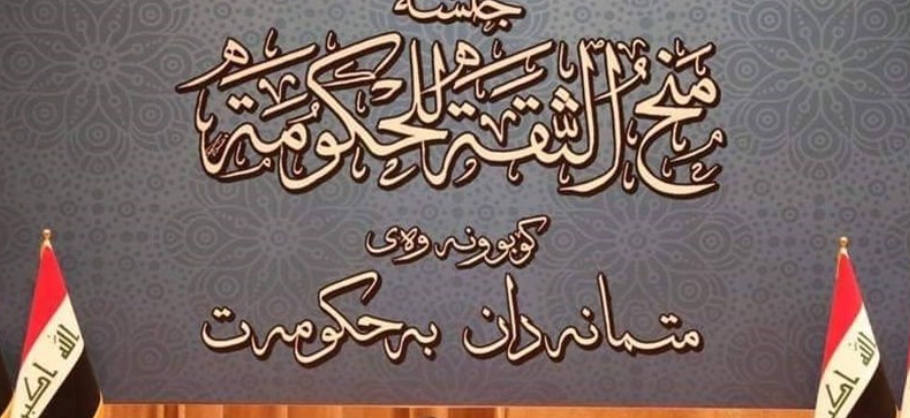 جلسة
منح الثقة للحكومة
كوبوونەوەی
متمانەدان بەحکومەت
الله اكبر
الله اكبر